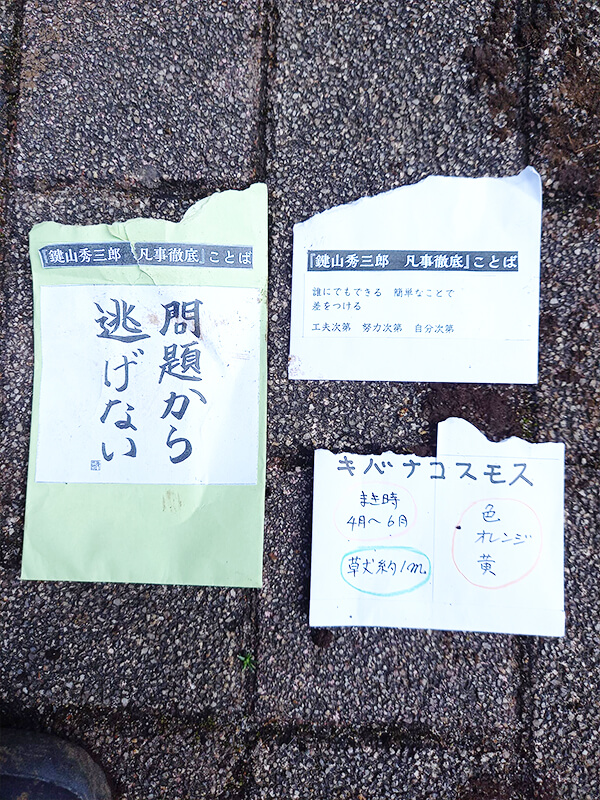 『鍵山秀三郎 凡事徹底』ことば
問題から
逃げない
『鍵山秀三郎 凡事徹底』ことば
誰にでもできる 簡単なことで
差をつける
工夫次第 努力次第 自分次第
キバナコスモス
まき時
4月~6月
草丈約1m.
色
オレンジ
黄